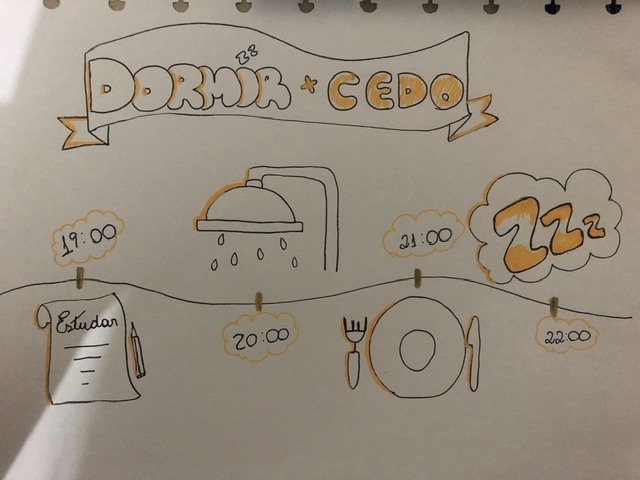 zz
DORMIR * CEDO
19:00
Estudar
20:00
21:00
ZZz
22:00